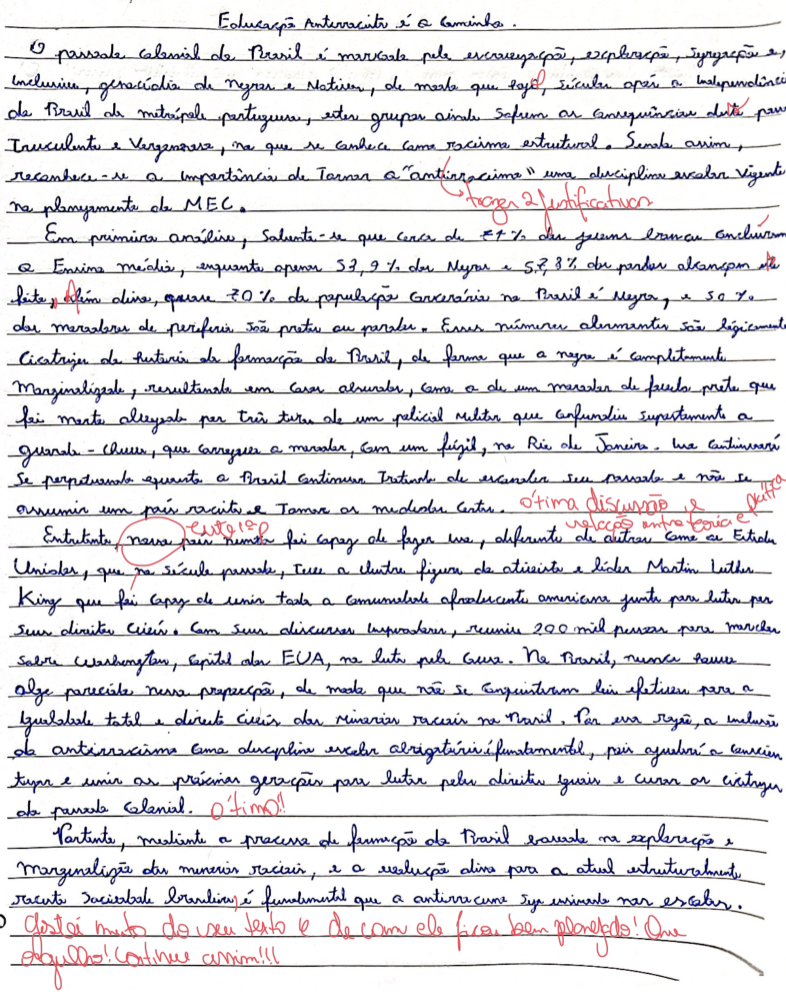 Educação Anterracista é o Caminho.
O passado colonial do Brasil é marcado pela escravização, exploração, segregação e,
inclusive, genocídio de negros e Nativos, de modo que hoje, séculos após a independência
do Brasil da metrópole portuguesa, estes grupos ainda sofrem as consequências deste
Truculento e Vergonhoso, no que se conhece como racismo estrutural. Sendo assim,
reconhece-se a importância de Tornar o "antirracismo" uma disciplina escolar Vigente
no planejamento do MEC.
trazer 2 justificativas
Em primeira análise, Salienta-se que cerca de 71% dos jovens brancos concluíram
o Ensino médio, enquanto apenas 53,9% dos Negros e 57,8% dos pardos alcançam
feito, Além disso, quase 70% da população carcerária no Brasil é Negra, e 50%
dos moradores de periferia são pretos ou pardos. Esses números alarmantes são logicamente
Cicatrizes da história da formação do Brasil, de forma que o negro é completamente
Marginalizado, resultando em casos absurdos, como o de um morador de favela preto que
foi morto alvejado por três tiros de um policial militar que confundiu supostamente o
guarda-chuva, que carregava o morador, com um fúzil, no Rio de Janeiro. Isso continuará
se perpetuando enquanto o Brasil continuar Tratando de esconder seu passado e não se
assumir um país racista e Tomar as medidas certas.
ótima discussão e
relação entre teoria e prática
Entretanto, nosso país nunca foi capaz de fazer isso, diferente de outros como os Estados
Unidos, que no século passado, teve a ilustre figura do ativista e líder Martin Luther
King que foi capaz de unir toda a comunidade afrodescente americana junta para lutar por
seus direitos Civis. Com seus discursos inspiradores, reuniu 200 mil pessoas para marchar
sobre Washington, capital dos EUA, na luta pela Causa. No Brasil, nunca houve
algo parecido nessa proporção, de modo que não se conquistaram leis efetivas para a
Igualdade total e direitos Civis das Minorias raciais no Brasil. Por essa razão, a inclusão
do antirracismo como disciplina escolar obrigatória é fundamental, pois ajudará a conscien
tizar e unir as próximas gerações para lutar pelos direitos iguais e curar as cicatrizes
do passado Colonial. Ótimo!!
Portanto, mediante o processo de formação do Brasil baseado na exploração e
Marginalização das minorias raciais, e a evolução disso para a atual estruturalmente
racista Sociedade brasileira, é fundamental que o antirracismo seja ensinado nas escolas.
Gostei muito do seu texto e de com ele ficou bem planejado! Que
orgulho! Continue assim!!!